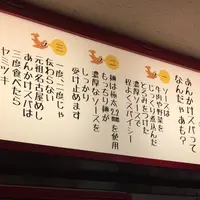 あんかけスパって
なんだゃあも?
一
ソースは
牛肉や野菜を
じっくり煮込んだ
とろみをつけた
濃厚ソースで
程よくスパイシー
二
麺は極太2.2㎜を使用
もっちり麺が
濃厚なソースを
しっかり
受け止めます
三
一度、二度じゃ
伝わらない
元祖名古屋めし
あんかけスパは
三度食べたら
ヤミツキ